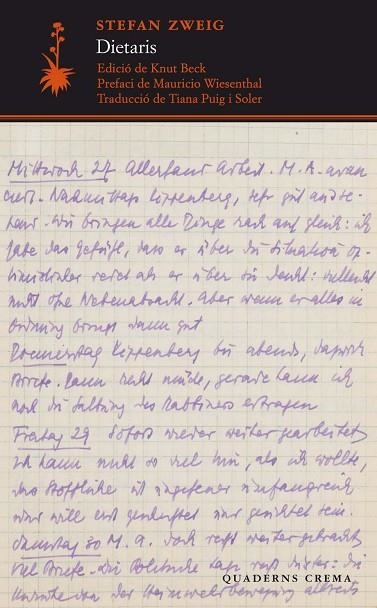 STEFAN ZWEIG
Dietaris
Edició de Knut Beck
Prefaci de Mauricio Wiesenthal
Traducció de Tiana Puig i Soler
Mittwoch 27 Allerhand Arbeit. M. A. avan
ciert. Nachmittags Kippenberg, sehr gut
Wir bringen alle Dinge nach auf gleich: ich
habe das Gefühl, dass er über die Situation op-
timistischer redet als er über sie denkt: vielleicht
nicht ohne Nebenabsicht. Aber wenn er alles in
Ordnung bringt dann gut
Donnerstag Kippenberg bis abends, dazwischen
Briefe. Dann recht müde, gerade kann ich
noch die des Rabbiners ertragen
Freitag 29 Sofort wieder weiter gearbeitet
Ich kann nicht so viel tun, als ich wollte,
das Stoffliche ist ungeheuer umfangreich
und will erst und gesichtet sein.
Samstag 30 M. A. doch recht weiter gebracht
Viel Briefe. Die Politische Lage recht düster: die
der Heimwehrbewegung
QUADERNS CREMA